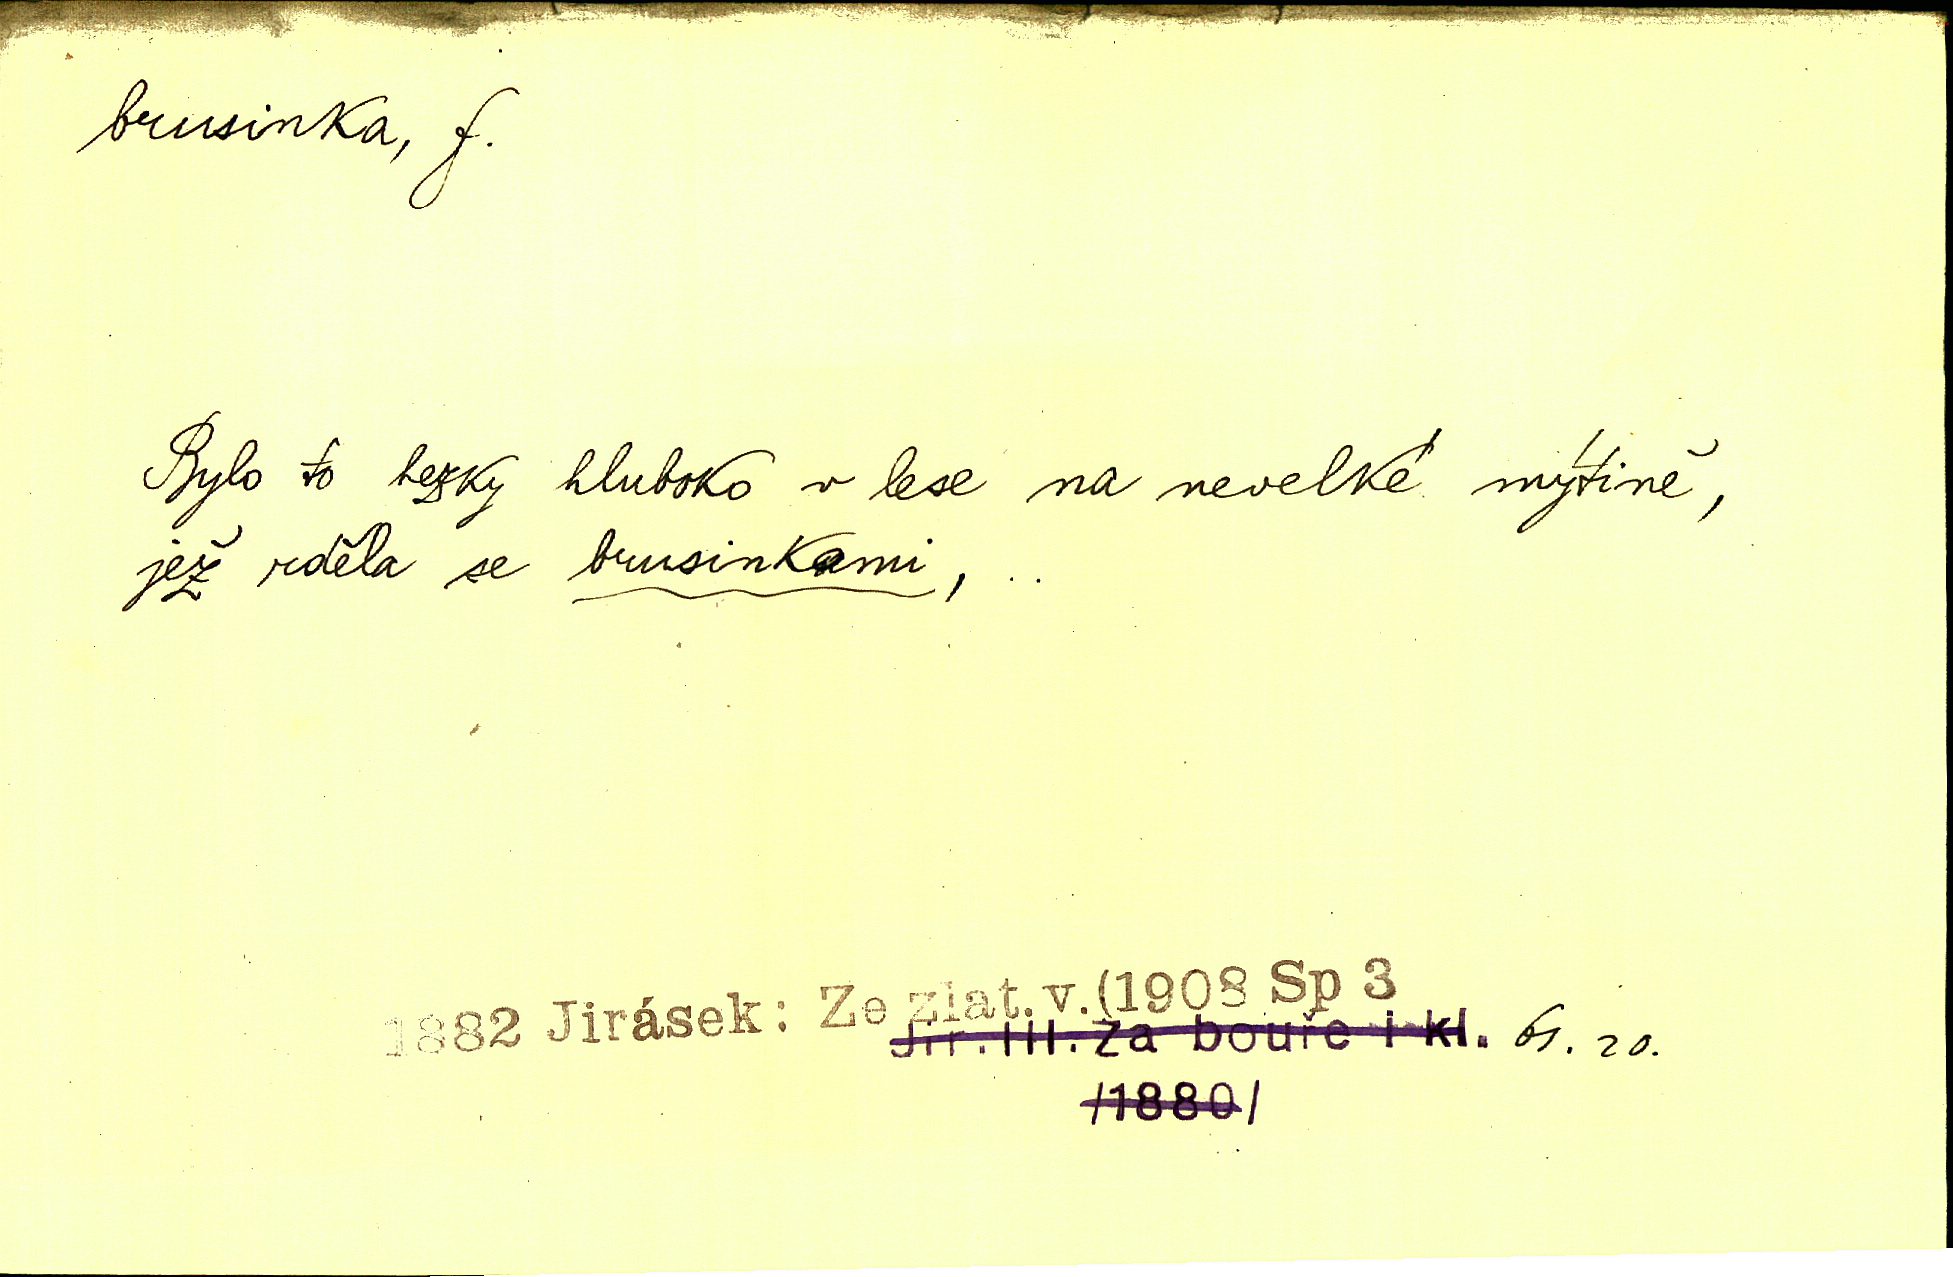 brusinka, f.
Bylo to hezky hluboko v lese na nevelké mýtině,
jež rděla se brusinkami, ..
1882 Jirásek: Ze zlat. v. (1908 Sp 3
Jir. III. Za bouře i kl. 61. 20.
/1880/